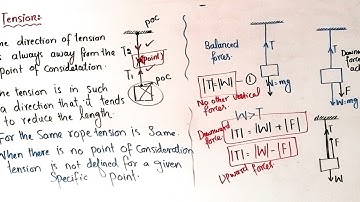 Tension:
The direction of tension
is always away from the
point of Consideration.
The tension is in such
a direction that it tends
to reduce the length.
For the Same rope tension is Same.
When there is no point of Consideration
tension is not defined for a given
Specific Point.
POC
T2
(Point)
T1
POC
Balanced
forces.
|T|=|W| - ①
No other Vertical
forces.
Downward
forces
W > T
|T| = |W| + |F|
|T| = |W| - |F|
Upward forces
T
W=mg
T
F
W=mg
F
T
W